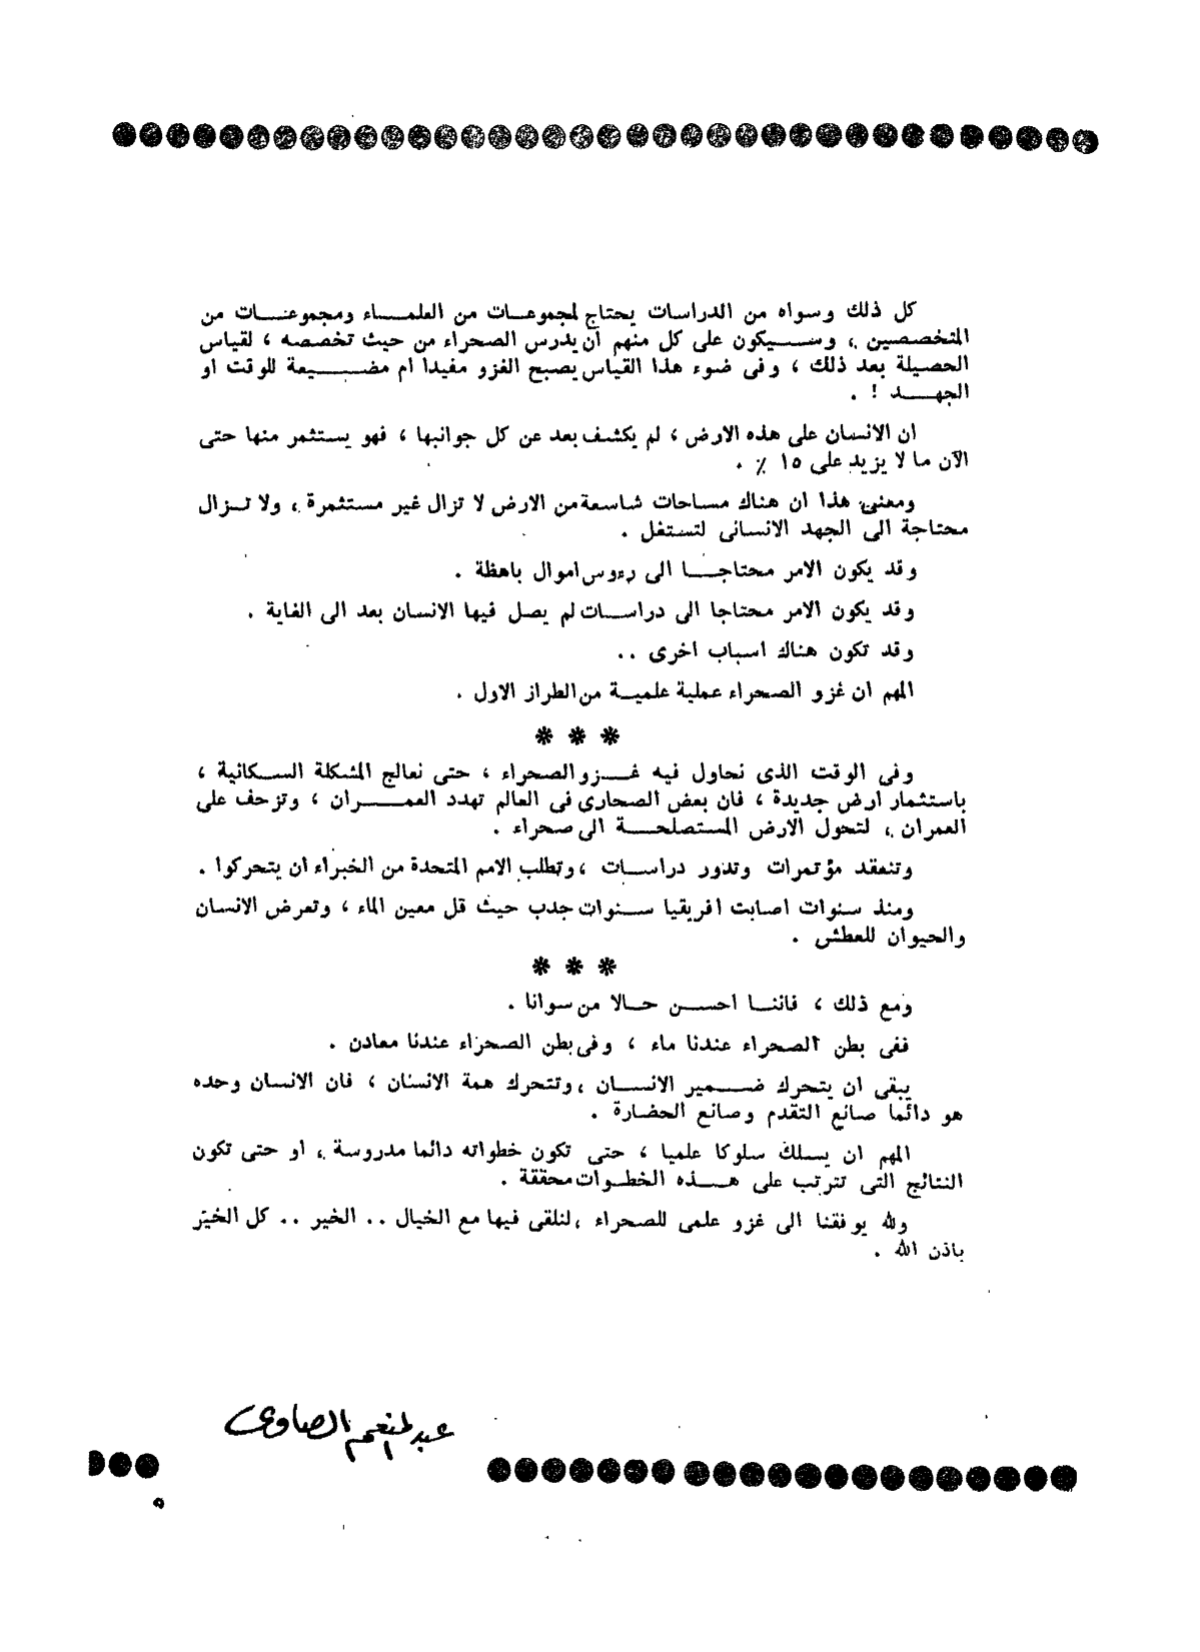 كل ذلك وسواه من الدراسات يحتاج لمجموعات من العلماء ومجموعات من
المتخصصين ، وسيكون على كل منهم أن يدرس الصحراء من حيث تخصصه ، لقياس
الحصيلة بعد ذلك ، وفى ضوء هذا القياس يصبح الغزو مفيدا ام مضيعة للوقت او
الجهد ! .
ان الانسان على هذه الارض ، لم يكشف بعد عن كل جوانبها ، فهو يستثمر منها حتى
الآن ما لا يزيد على ١٥ ٪ .
ومعنى هذا ان هناك مساحات شاسعة من الارض لا تزال غير مستثمرة ، ولا تزال
محتاجة الى الجهد الانسانى لتستغل .
وقد يكون الامر محتاجا الى رءوس اموال باهظة .
وقد يكون الامر محتاجا الى دراسات لم يصل فيها الانسان بعد الى الغاية .
وقد تكون هناك اسباب اخرى ..
المهم ان غزو الصحراء عملية علمية من الطراز الاول .
* * *
وفى الوقت الذى نحاول فيه غزو الصحراء ، حتى نعالج المشكلة السكانية ،
باستثمار ارض جديدة ، فان بعض الصحارى فى العالم تهدد العمران ، وتزحف على
العمران ، لتحول الارض المستصلحة الى صحراء .
وتنعقد مؤتمرات وتدور دراسات ، وتطلب الامم المتحدة من الخبراء ان يتحركوا .
ومنذ سنوات اصابت افريقيا سنوات جدب حيث قل معين الماء ، وتعرض الانسان
والحيوان للعطش .
* * *
ومع ذلك ، فاننا احسن حالا من سوانا .
ففى بطن الصحراء عندنا ماء ، وفى بطن الصحراء عندنا معادن .
يبقى ان يتحرك ضمير الانسان ، وتتحرك همة الانسان ، فان الانسان وحده
هو دائما صانع التقدم وصانع الحضارة .
المهم ان يسلك سلوكا علميا ، حتى تكون خطواته دائما مدروسة ، او حتى تكون
النتائج التى تترتب على هذه الخطوات محققة .
ولله يوفقنا الى غزو علمى للصحراء ، لنلقى فيها مع الخيال .. الخير .. كل الخير
باذن الله .
عبد المنعم الصاوى
٥